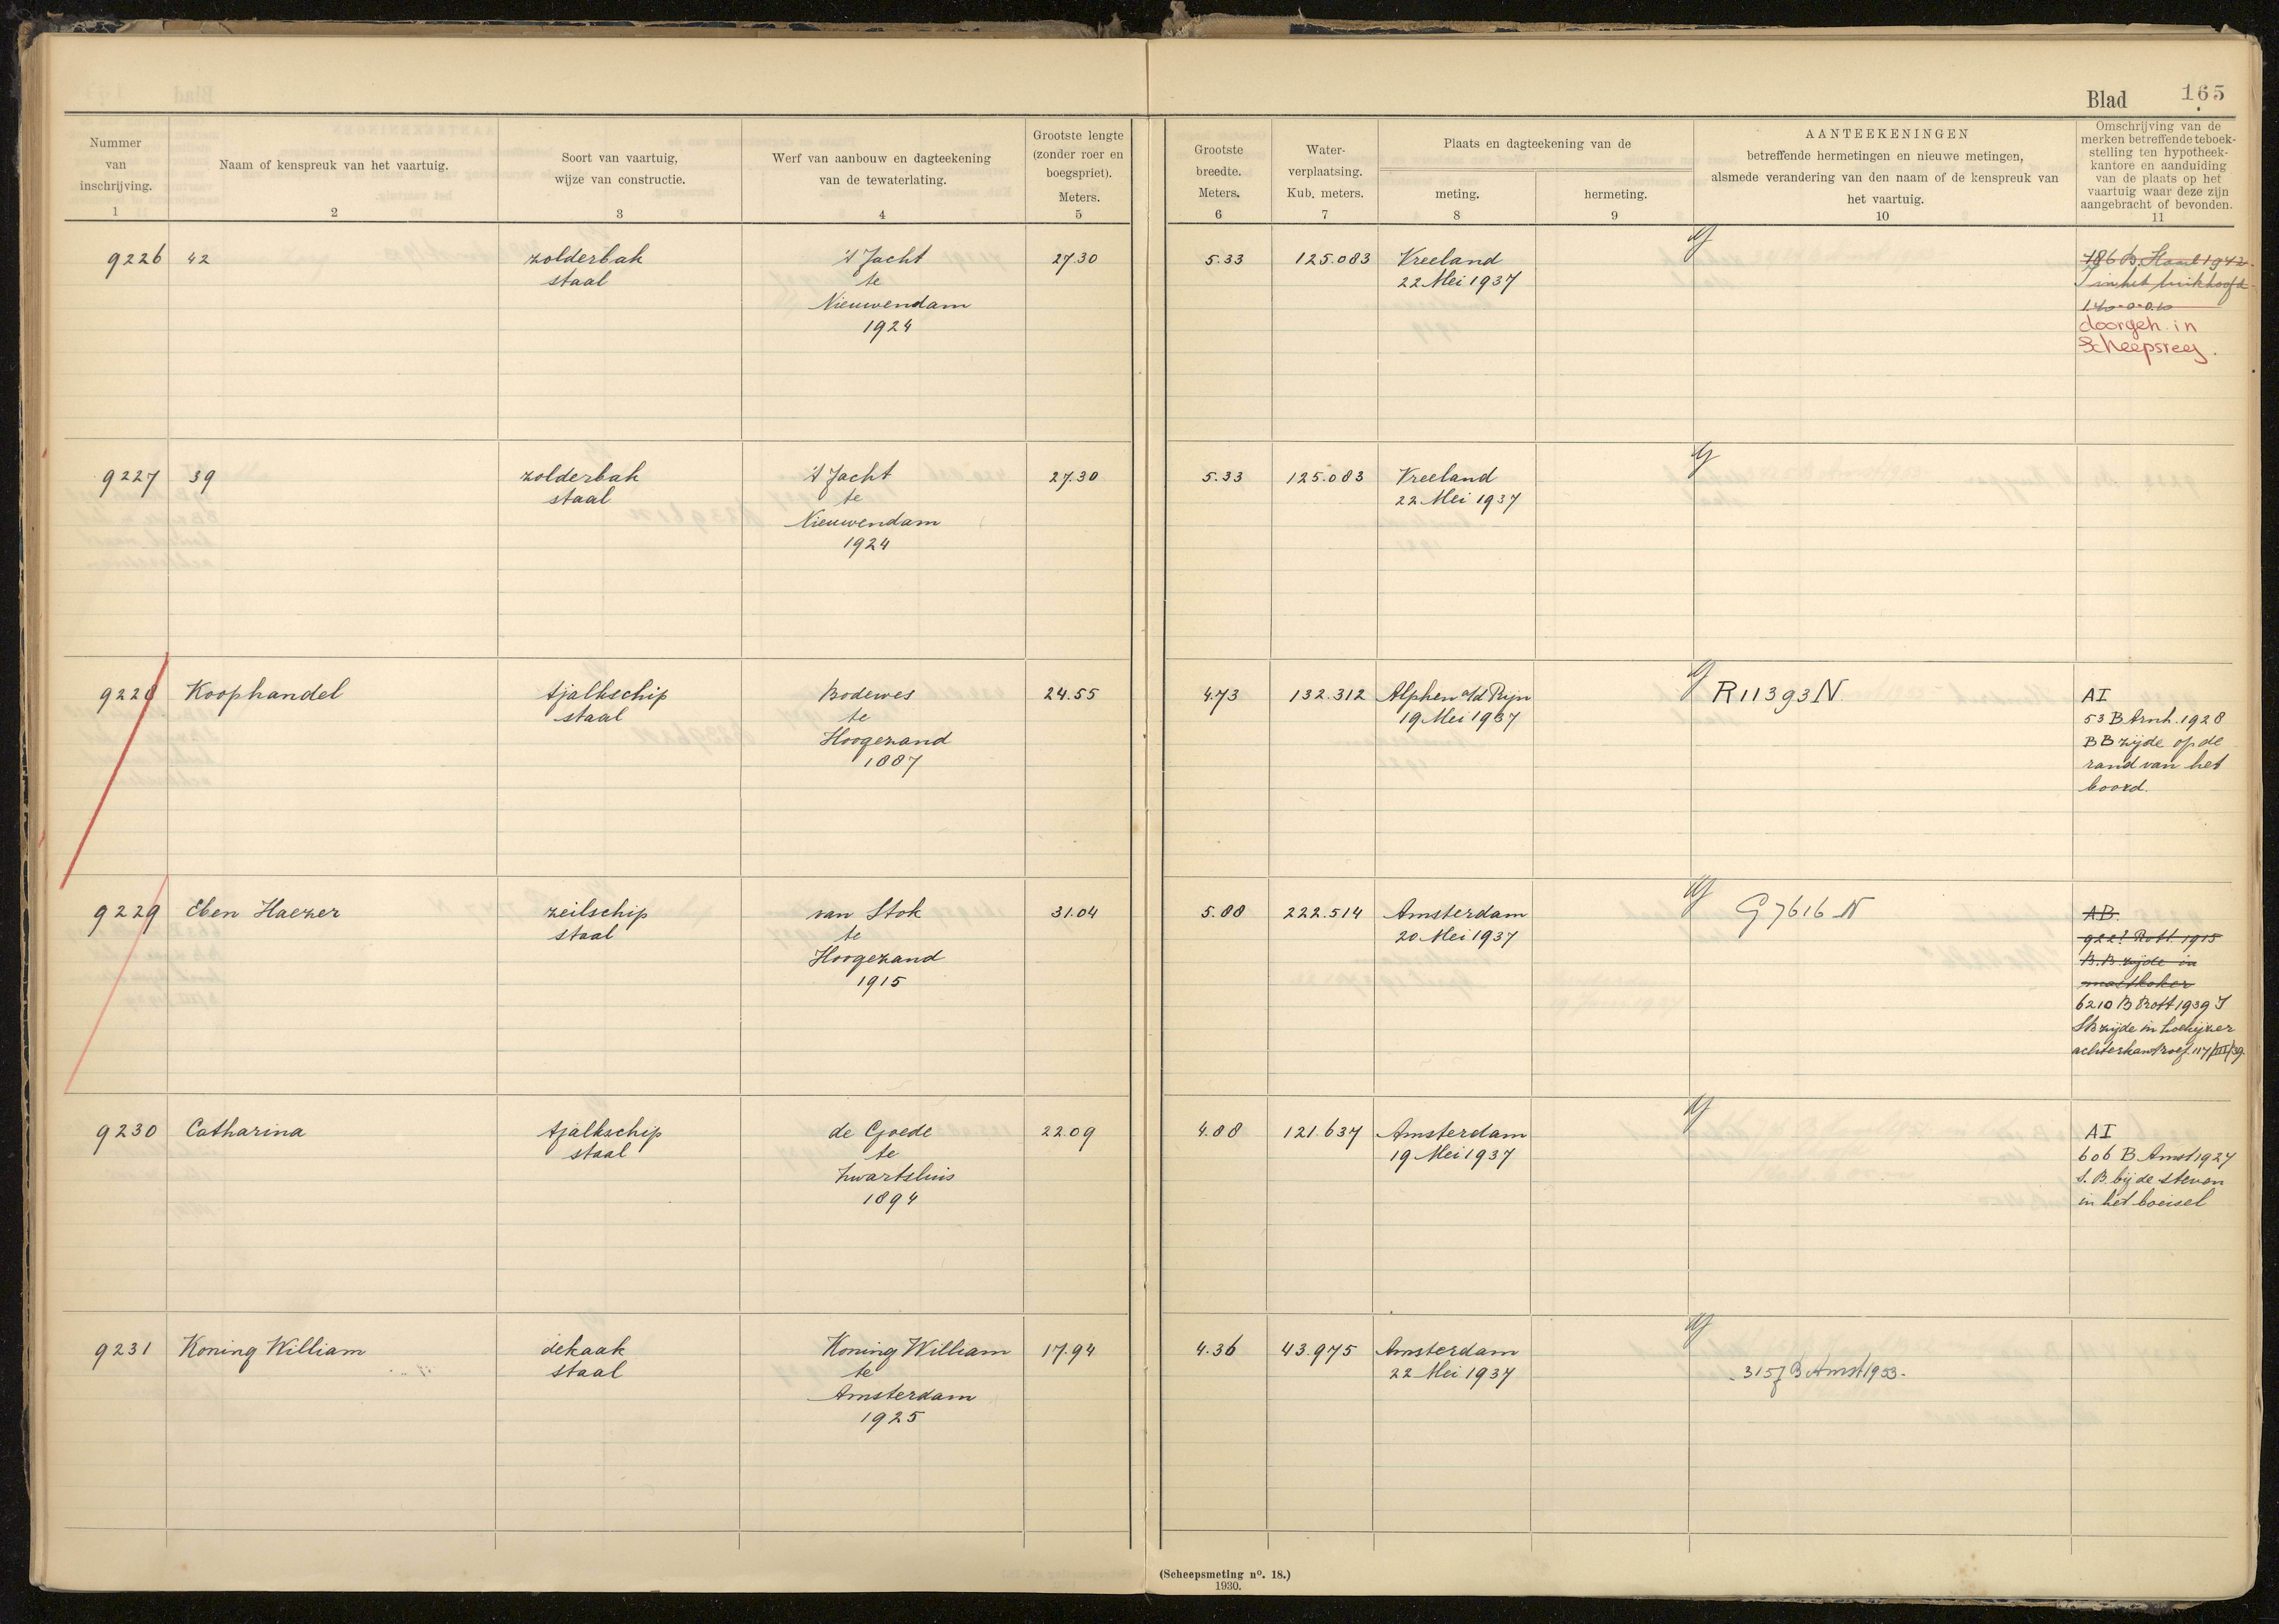 Blad 165
Nummer
van
inschrijving.
1
Naam of kenspreuk van het vaartuig.
2
Soort van vaartuig,
wijze van constructie.
3
Werf van aanbouw en dagteekening
van de tewaterlating.
4
Grootste lengte
(zonder roer en
boegspriet).
Meters.
5
Grootste
breedte.
Meters.
6
Water-
verplaatsing.
Kub. meters.
7
Plaats en dagteekening van de
meting.
8
hermeting.
9
AANTEEKENINGEN
betreffende hermetingen en nieuwe metingen,
alsmede verandering van den naam of de kenspreuk van
het vaartuig.
10
Omschrijving van de
merken betreffende teboek-
stelling ten hypotheek-
kantore en aanduiding
van de plaats op het
vaartuig waar deze zijn
aangebracht of bevonden.
11
9226 42 zolderbak 't Jacht 27.30 5.33 125.083 Vreeland
staal te 22 Mei 1937
Nieuwendam
1924
786 B. Haarl 1942
in het luikhoofd
doorgeh. in
Scheepsreg.
9227 39 zolderbak 't Jacht 27.30 5.33 125.083 Vreeland
staal te 22 Mei 1937
Nieuwendam
1924
9228 Koophandel tjalkschip Bodewes 24.55 4.73 132.312 Alphen a/d Rijn R11393N
staal te 19 Mei 1937
Hoogezand
1887
AI
53 B Arnh. 1928
BB zijde op de
rand van het
boord.
9229 Eben Haezer zeilschip van Stok 31.04 5.88 222.514 Amsterdam G7616N
staal te 20 Mei 1937
Hoogezand
1915
AB.
922? Rott. 1915
B.B. zijde in
mastkoker
6210 B Rott 1939 J
SB zijde in hoekijzer
achterkant roef. 117/III/39.
9230 Catharina tjalkschip de Goede 22.09 4.88 121.637 Amsterdam
staal te 19 Mei 1937
Zwartsluis
1894
AI
606 B Amst 1927
S.B. bij de steven
in het boeisel
9231 Koning William dekaak Koning William 17.94 4.36 43.975 Amsterdam
staal te 22 Mei 1937 3157 B Amst 1953.
Amsterdam
1925
(Scheepsmeting no. 18.)
1930.